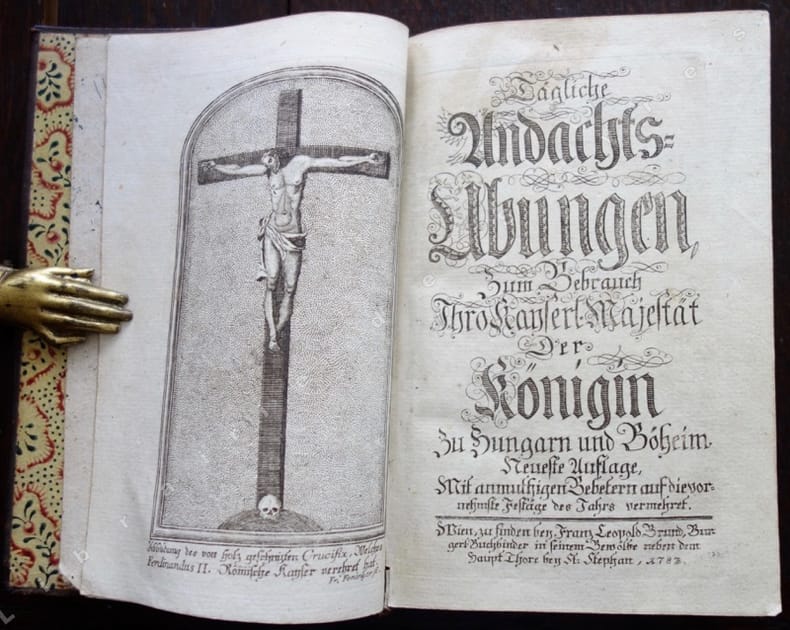 Abbildung des von Holz geschnizten Crucifix, Welches
Ferdinandus II. Römische Kayser verehret hat.
Tägliche
Andachts-
Übungen,
Zum Gebrauch
Ihro Kayserl. Majestät
Der
Königin
Zu Hungarn und Böheim.
Neueste Auflage,
Mit anmuthigen Gebetern auf die vor-
nehmste Festäge des Jahrs vermehret.
Wien, zu finden bey Franz Leopold Grund, Bur
gerl. Buchbinder in seinem Gewölbe neben dem
Haupt Thore bey St. Stephan,